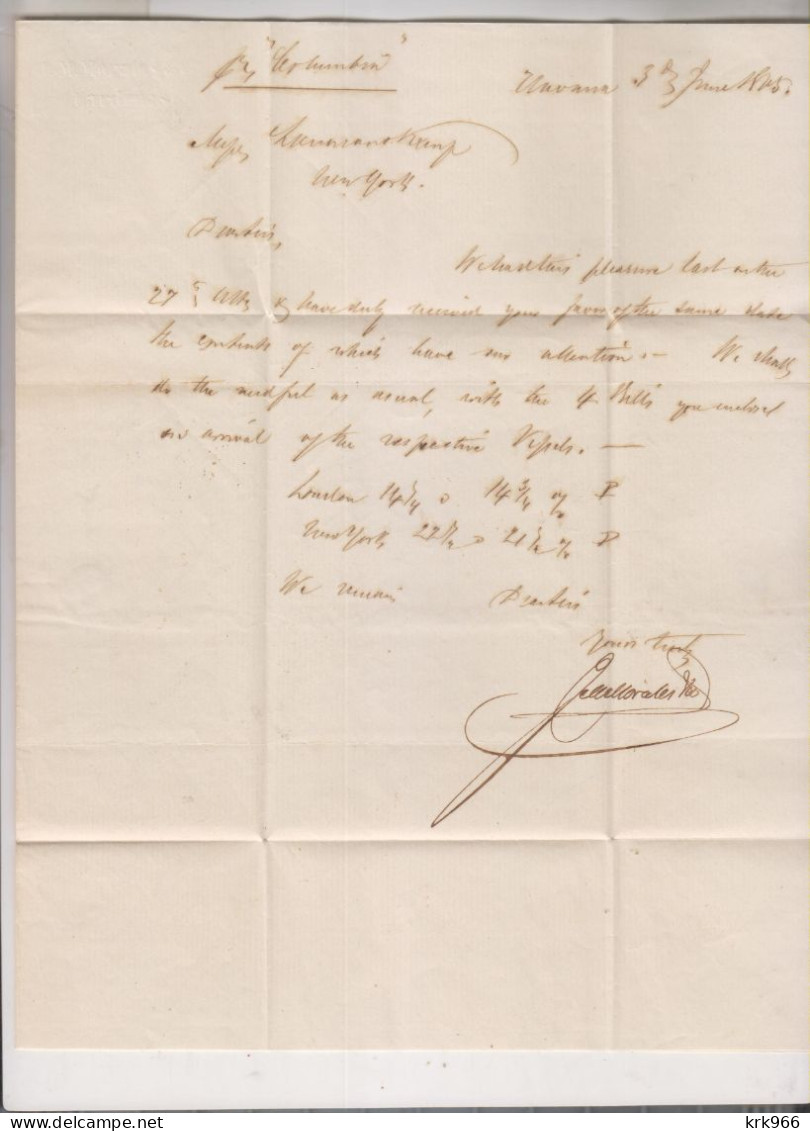 p "Columbia"
Havana 3d June 1865.
Messrs Lanman & Kemp
New York.
Dear Sirs,
We had this pleasure last on the
27th Ulto & have duly received your favor of the same date
the contents of which have our attention. — We shall
do the needful as usual, with the 4 Bills you enclosed
on arrival of the respective Vessels. —
London 14 1/4 a 14 3/4 % P
New York 22 1/2 a 21 1/2 % D
We remain Dear Sirs
Yours truly
krk966